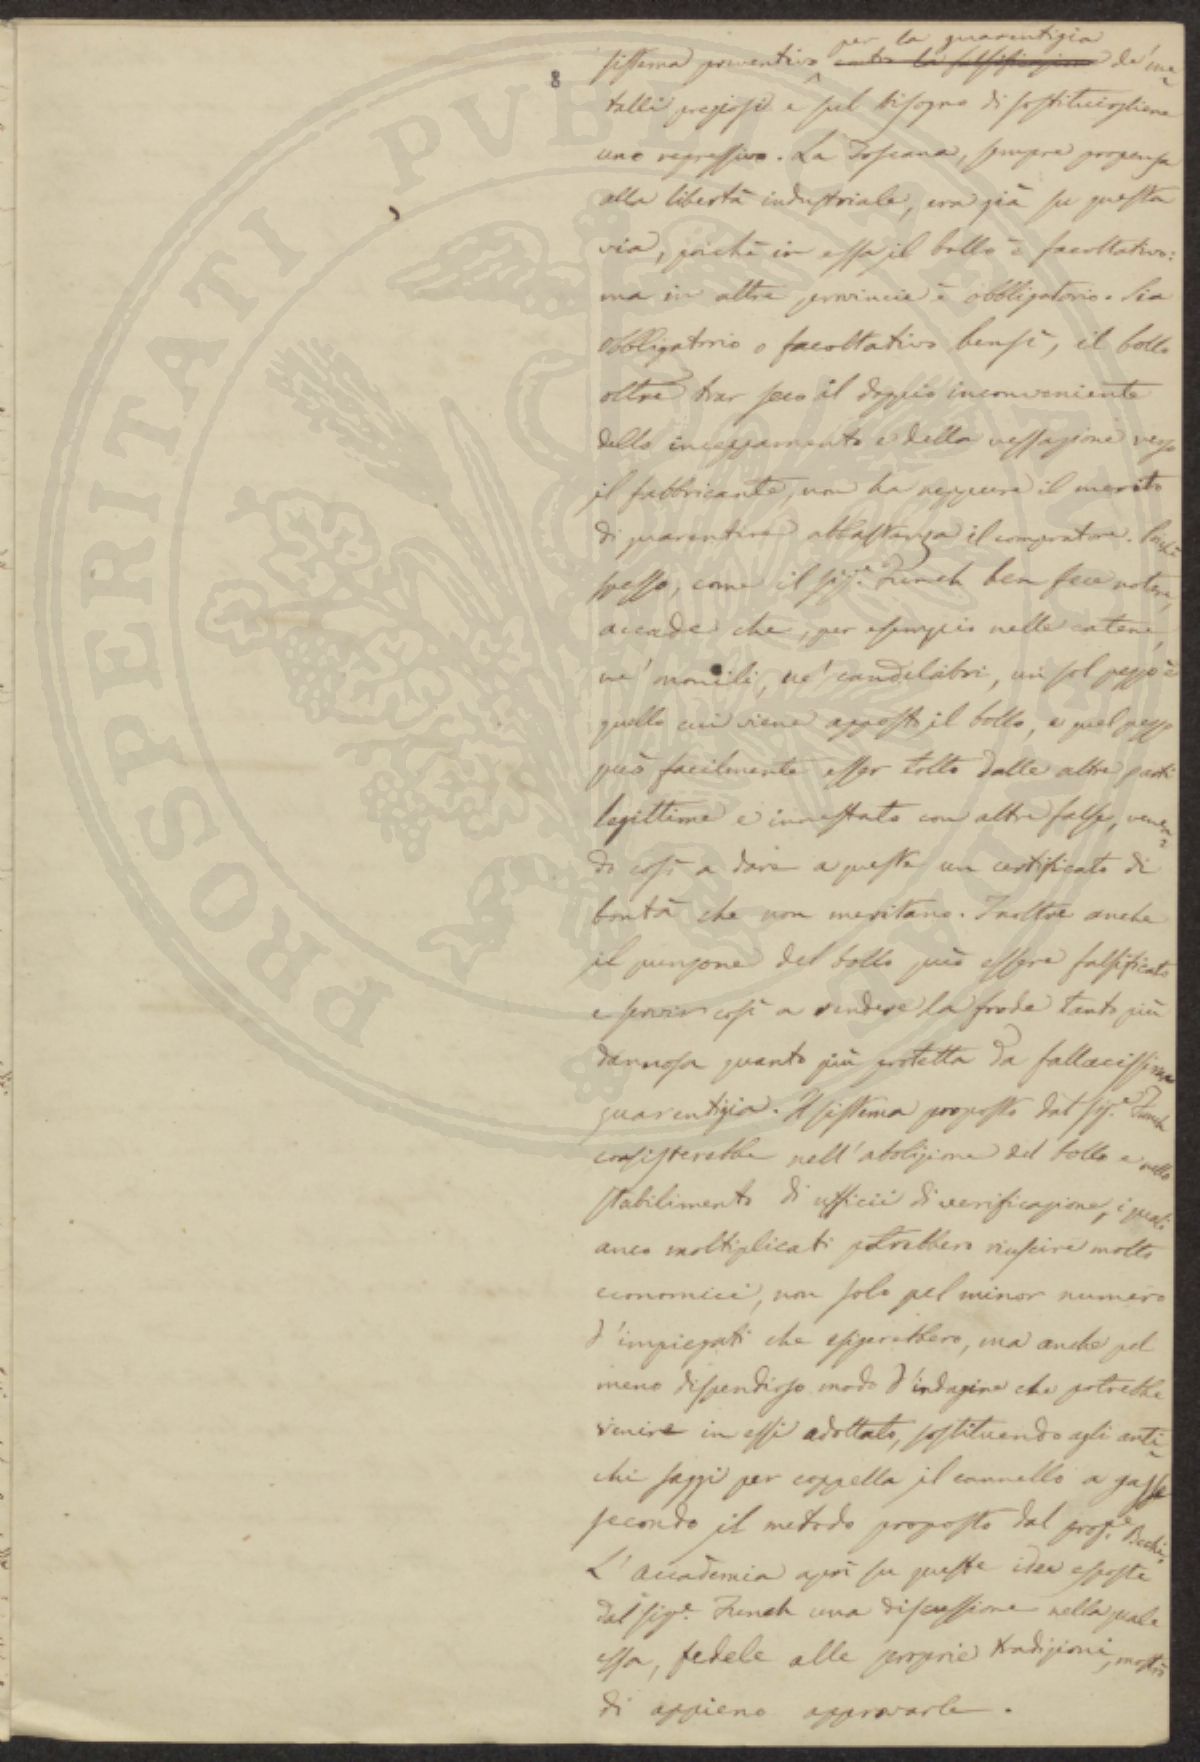 8
per la guarentigia
sistema preventivo contro la falsificazione de' me
talli preziosi e sul bisogno di sostituirgliene
uno repressivo. La Toscana, sempre propensa
alla libertà industriale, era già su questa
via, poichè in essa il bollo è facoltativo:
ma in altre provincie è obbligatorio. Sia
obbligatorio o facoltativo bensì, il bollo
oltre trar seco il doppio inconveniente
dello inceppamento e della vessazione verso
il fabbricante, non ha neppure il merito
di guarentire abbastanza il compratore. Poichè
spesso, come il sig.e French ben fece notare,
accade che, per esempio nelle catene,
ne' monili, ne' candelabri, un sol pezzo è
quello cui viene apposto il bollo, e quel pezzo
può facilmente esser tolto dalle altre parti
legittime e innestato con altre false, venen
do così a dare a queste un certificato di
bontà che non meritano. Inoltre anche
il punzone del bollo può essere falsificato
e servir così a rendere la frode tanto più
dannosa quanto più protetta da fallacissima
guarentigia. Il sistema proposto dal sig.e French
consisterebbe nell'abolizione del bollo e nello
stabilimento di ufficii di verificazione, i quali
anco moltiplicati potrebbero riuscire molto
economici, non solo pel minor numero
d'impiegati che esigerebbero, ma anche pel
meno dispendioso modo d'indagine che potrebbe
venire in essi adottato, sostituendo agli anti
chi saggi per coppella il cannello a gasse
secondo il metodo proposto dal prof.e Bechi.
L'Accademia aprì su queste idee esposte
dal sig.e French una discussione nella quale
essa, fedele alle proprie tradizioni, mostrò
di appieno approvarle.
PROSPERITATI PUBLICAE